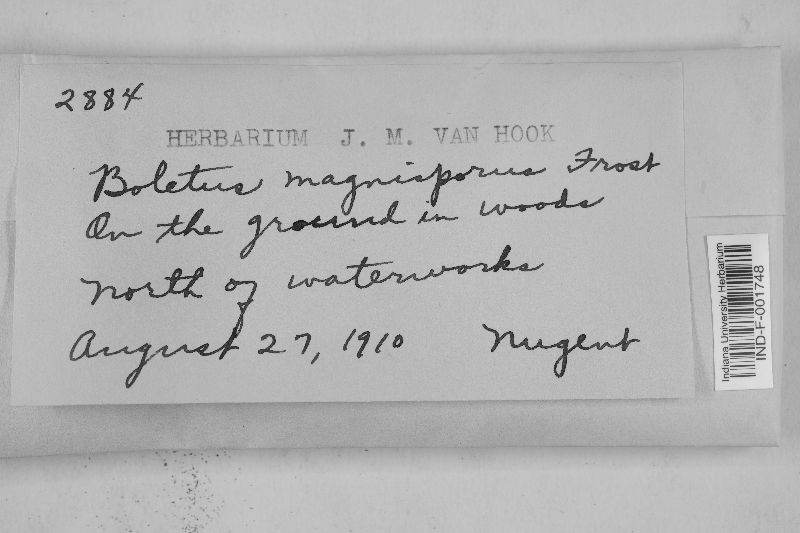 2884
HERBARIUM J. M. VAN HOOK
Boletus magnisporus Frost
On the ground in woods
north of waterworks
August 27, 1910 Nugent
Indiana University Herbarium
IND-F-001748